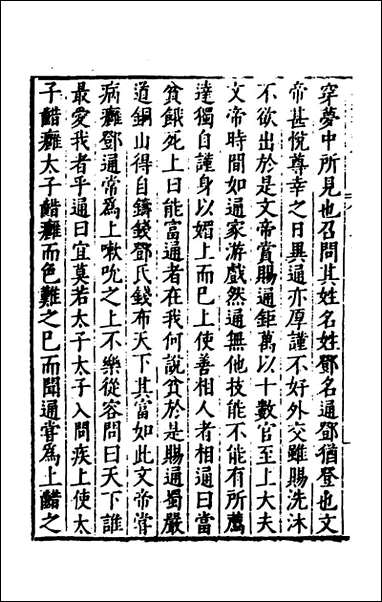 穿夢中所見也召問其姓名姓鄧名通鄧猶登也文
帝甚悅尊幸之日異通亦厚謹不好外交雖賜洗沐
不欲出於是文帝賞賜通鉅萬以十數官至上大夫
文帝時間如通家游戲然通無他技能不能有所薦
達獨自謹身以媚上而巳上使善相人者相通曰當
貧餓死上曰能富通者在我何說貧於是賜通蜀嚴
道銅山得自鑄錢鄧氏錢布天下其富如此文帝嘗
病癰鄧通常爲上嗽吮之上不樂從容問曰天下誰
最愛我者乎通曰宜莫若太子太子入問疾上使太
子齰癰太子齰癰而色難之巳而聞通嘗爲上齰之